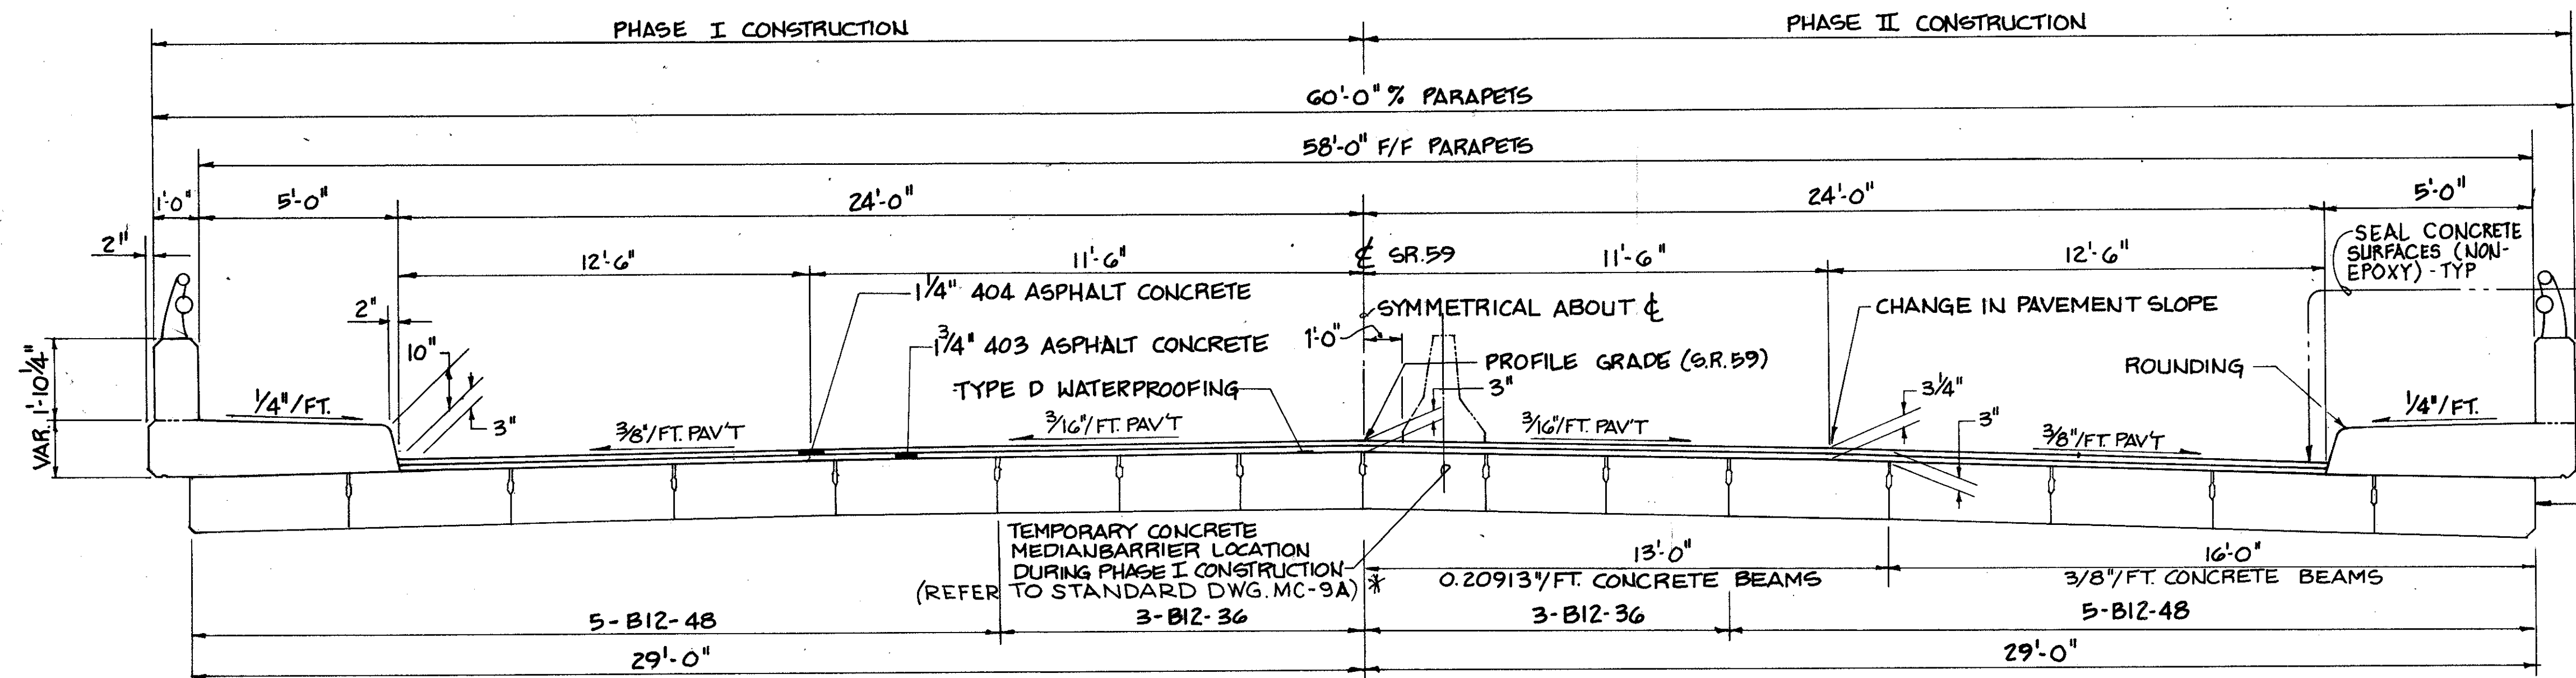 PHASE I CONSTRUCTION
PHASE II CONSTRUCTION
60'-0" % PARAPETS
58'-0" F/F PARAPETS
1'-0"
5'-0"
24'-0"
24'-0"
5'-0"
2"
12'-6"
11'-6"
℄ SR.59
11'-6"
12'-6"
SEAL CONCRETE
SURFACES (NON-
EPOXY) - TYP
1 1/4" 404 ASPHALT CONCRETE
SYMMETRICAL ABOUT ℄
CHANGE IN PAVEMENT SLOPE
2"
10"
1 3/4" 403 ASPHALT CONCRETE
1'-0"
PROFILE GRADE (S.R.59)
ROUNDING
VAR. 1'-10 1/4"
TYPE D WATERPROOFING
3"
3 1/4"
1/4"/FT.
3"
3/8"/FT. PAV'T
3/16"/FT. PAV'T
3/16"/FT. PAV'T
3"
3/8"/FT. PAV'T
1/4"/FT.
TEMPORARY CONCRETE
MEDIANBARRIER LOCATION
DURING PHASE I CONSTRUCTION
(REFER TO STANDARD DWG. MC-9A) *
13'-0"
0.20913"/FT. CONCRETE BEAMS
16'-0"
3/8"/FT. CONCRETE BEAMS
5-B12-48
3-B12-36
3-B12-36
5-B12-48
29'-0"
29'-0"